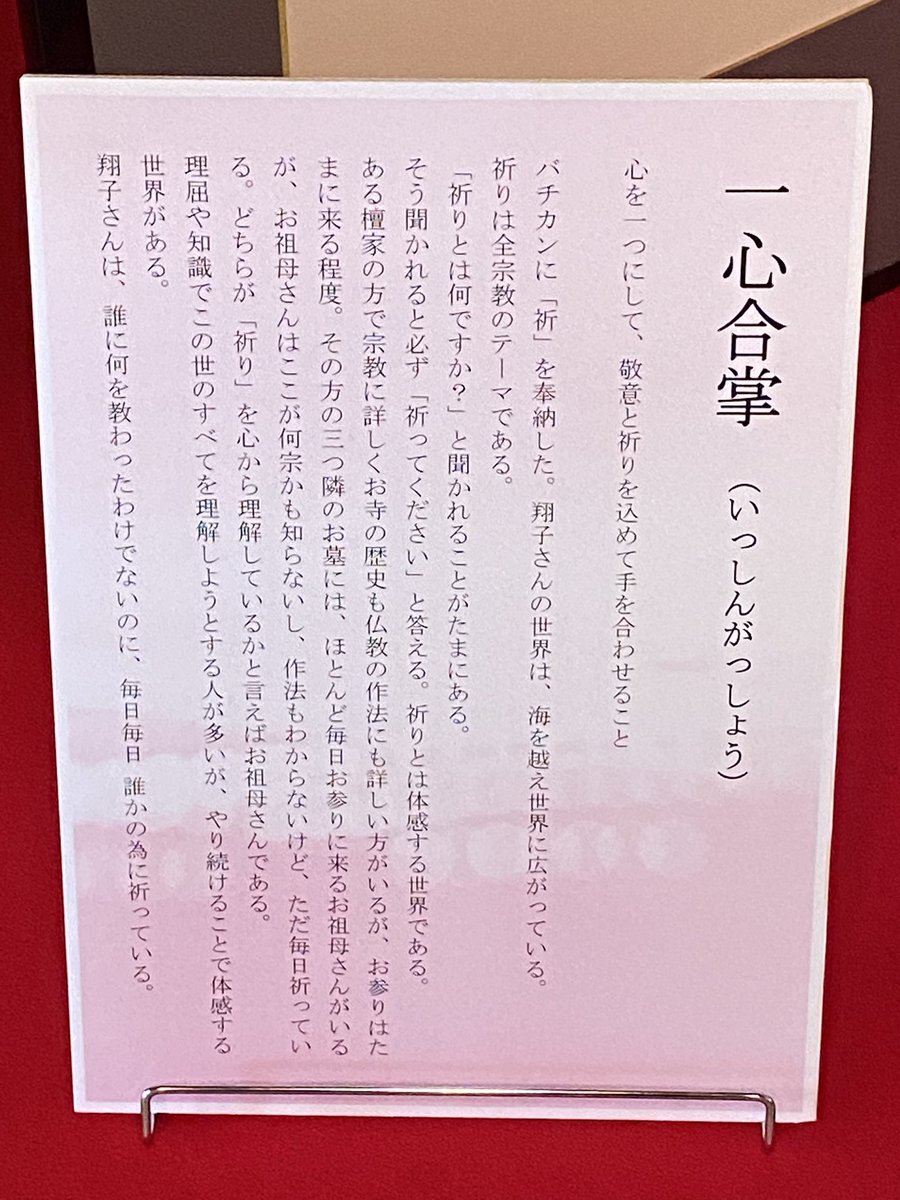 一心合掌 (いっしんがっしょう)
心を一つにして、敬意と祈りを込めて手を合わせること
バチカンに「祈」を奉納した。翔子さんの世界は、海を越え世界に広がっている。
祈りは全宗教のテーマである。
「祈りとは何ですか？」と聞かれることがたまにある。
そう聞かれると必ず「祈ってください」と答える。祈りとは体感する世界である。
ある檀家の方で宗教に詳しくお寺の歴史も仏教の作法にも詳しい方がいるが、お参りはた
まに来る程度。その方の三つ隣のお墓には、ほとんど毎日お参りに来るお祖母さんがいる
が、お祖母さんはここが何宗かも知らないし、作法もわからないけど、ただ毎日祈ってい
る。どちらが「祈り」を心から理解しているかと言えばお祖母さんである。
理屈や知識でこの世のすべてを理解しようとする人が多いが、やり続けることで体感する
世界がある。
翔子さんは、誰に何を教わったわけでないのに、毎日毎日 誰かの為に祈っている。